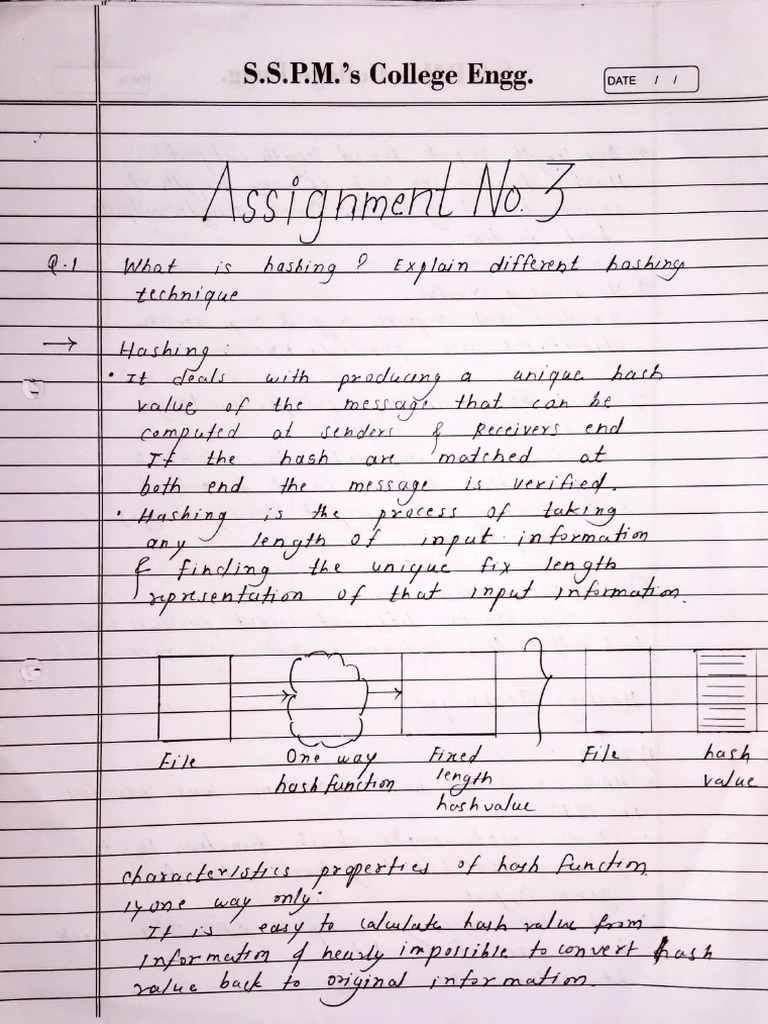 S.S.P.M.'s College Engg.
DATE / /
Assignment No. 3
Q.1 What is hashing ? Explain different hashing
technique
→ Hashing :
• It deals with producing a unique hash
value of the message that can be
computed at senders & Receivers end
If the hash are matched at
both end the message is verified.
• Hashing is the process of taking
any length of input information
& finding the unique fix length
representation of that input information.
File
One way
hash function
Fixed
length
hash value
File
hash
value
characteristics properties of hash function
1) one way only:
It is easy to calculate hash value from
information & nearly impossible to convert hash
value back to original information.